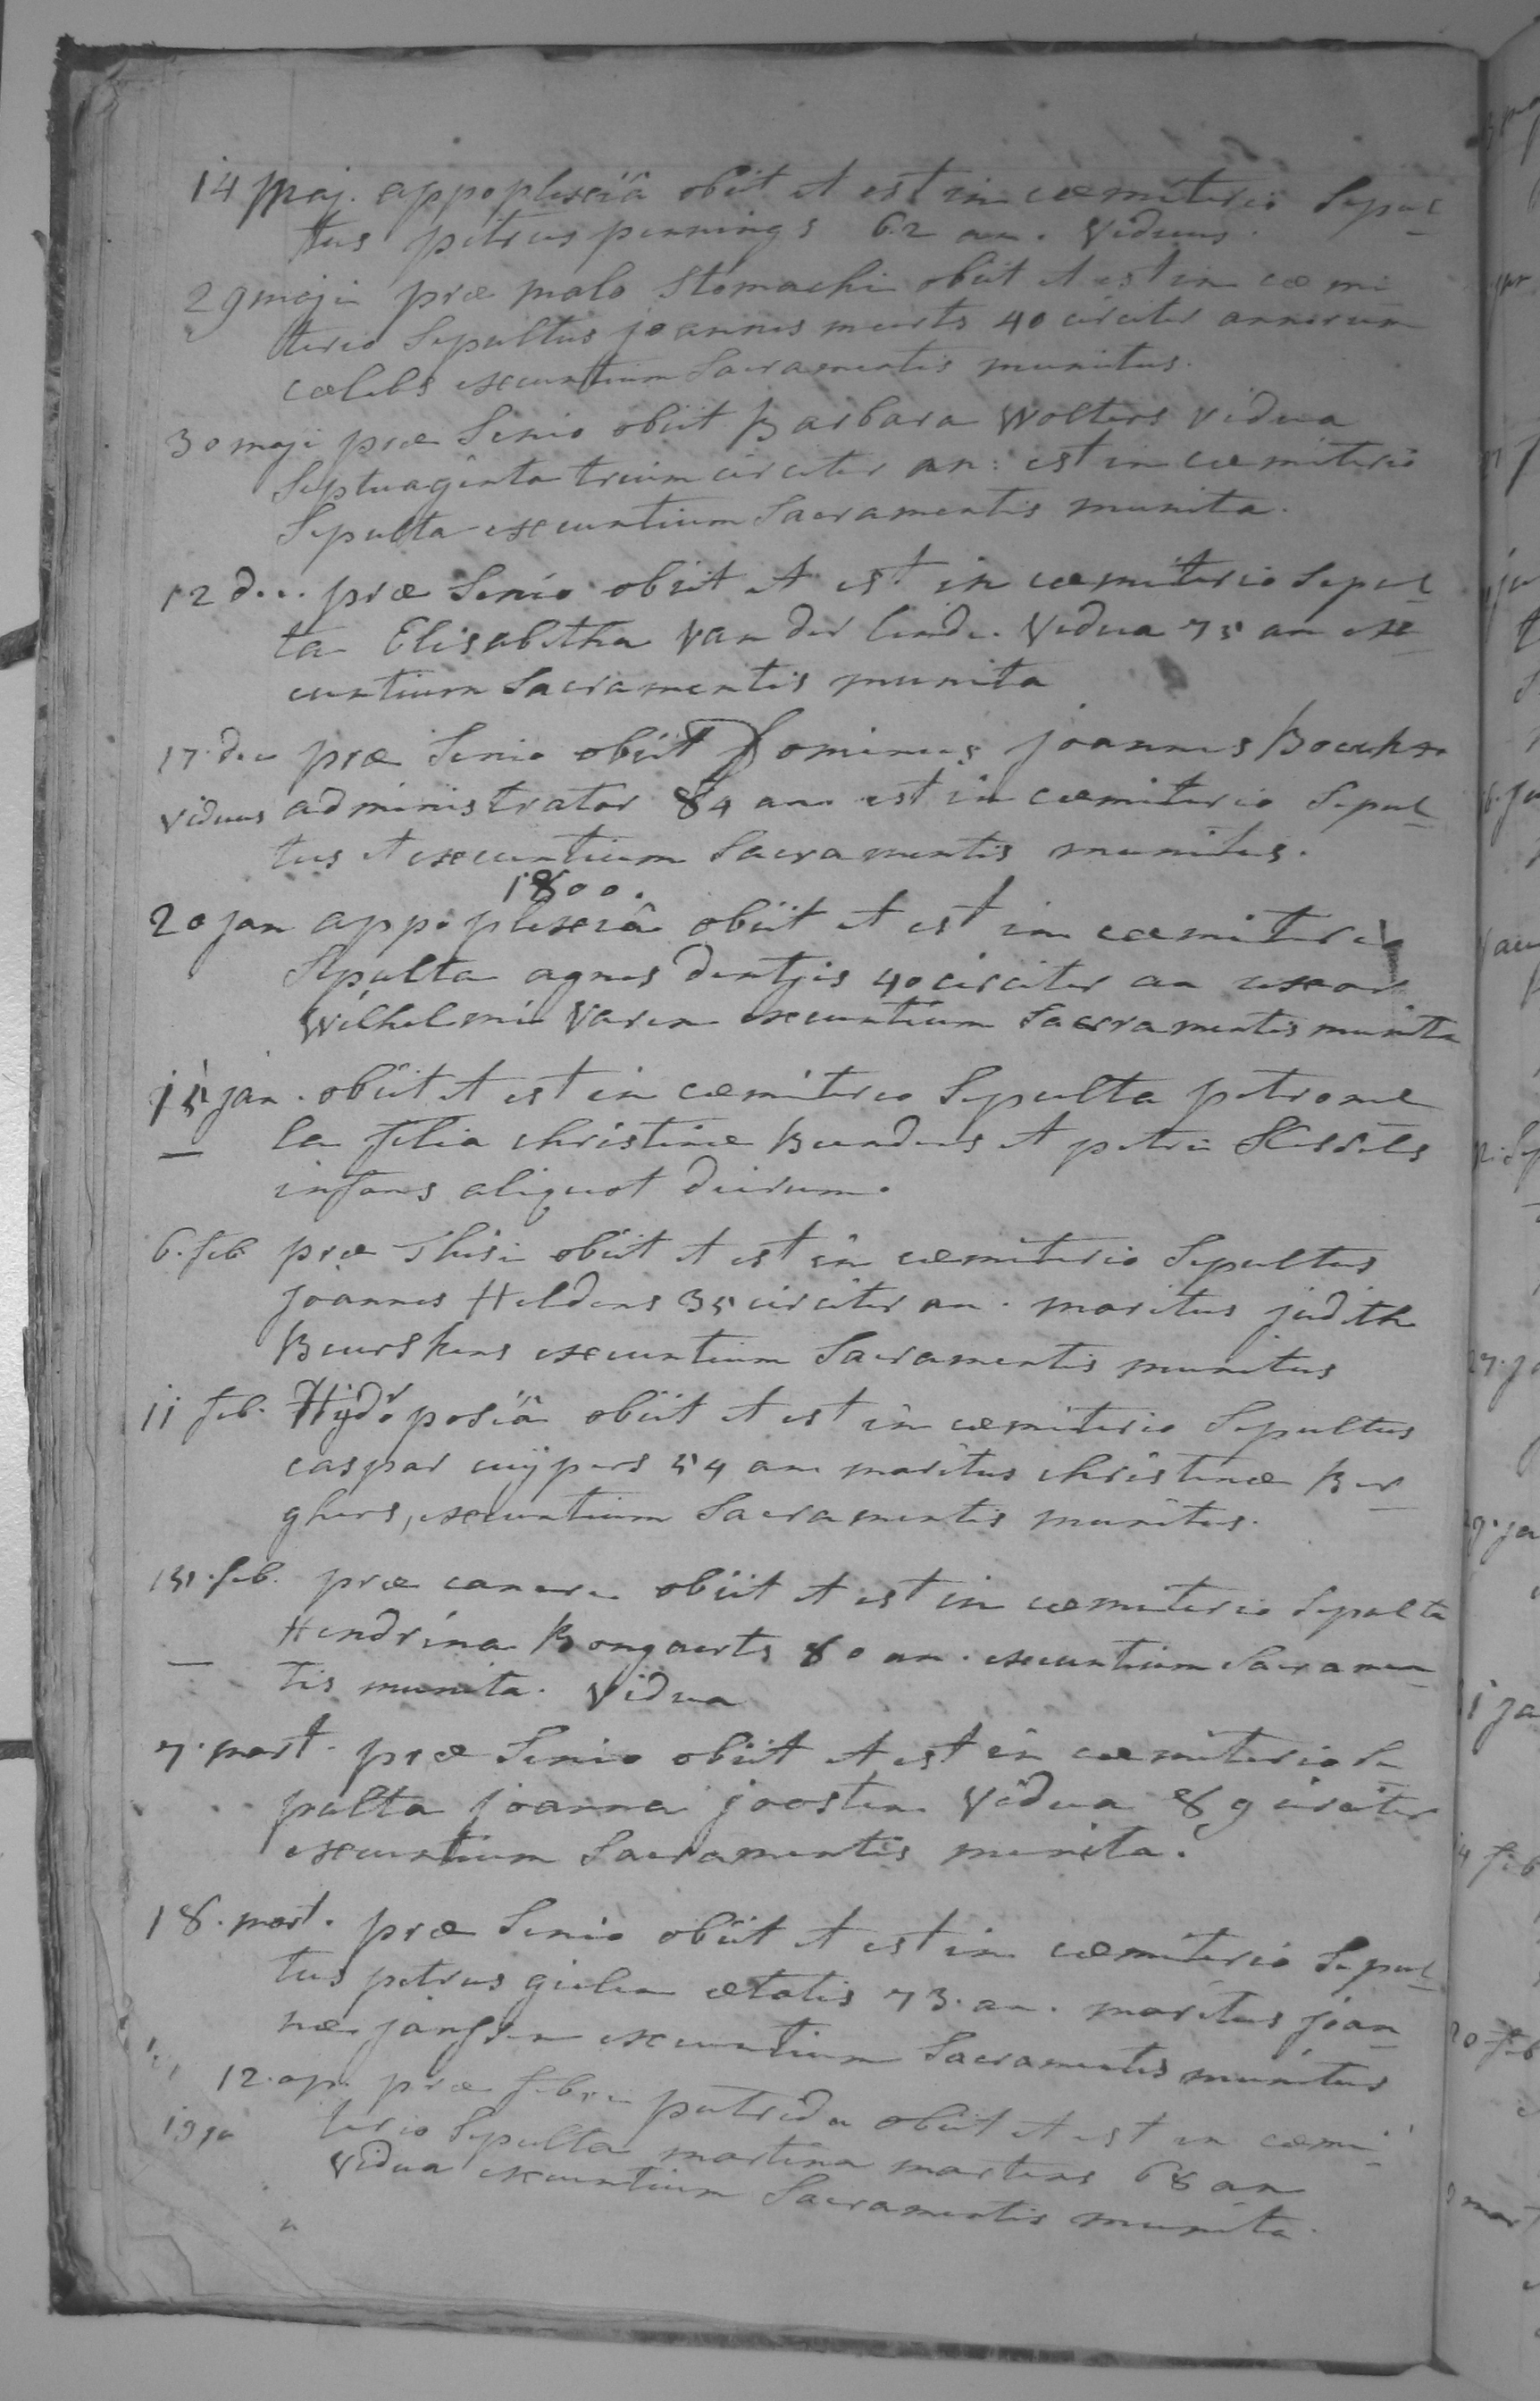 14 Maj. appoplexiâ obiit et est in cœmiterio Sepul-
tus petrus pennings 62 an. Viduus.
29 maji præ malo stomachi obiit et est in cœmi
terio Sepultus joannes meerts 40 circiter annorum
cœlebs exeuntium Sacramentis munitus.
30 maji præ Senio obiit Barbara Wolters vidua
Septuaginta trium circiter an: est in cœmiterio
Sepulta exeuntium Sacramentis munita.
12 dec. præ Senio obiit et est in cœmiterio Sepul-
ta Elisabetha Van der linde. Vidua 75 an exe-
untium Sacramentis munita
17. dec præ Senio obiit Dominus joannes
viduus administrator 84 an. est in cœmiterio Sepul-
tus et exeuntium Sacramentis munitus.
1800.
20 jan appoplexiâ obiit et est in cœmiterio
Sepulta agnes dentjis 40 circiter an uxor
Wilhelmi Varen exeuntium Sacramentis munita
15 jan. obiit et est in cœmiterio Sepulta petronel
la filia christinæ Beenders et petri
infans aliquot dierum.
6. feb. præ Thisi obiit et est in cœmiterio Sepultus
Joannes Heldens 35 circiter an. maritus judith
Beurskens exeuntium Sacramentis munitus
11 feb. Hydroposiâ obiit et est in cœmiterio Sepultus
caspar cuijpers 54 an maritus christinæ Ber-
ghers, exeuntium Sacramentis munitus.
15. feb. præ cancre obiit et est in cœmiterio Sepulta
Hendrina Bongaerts 80 an. exeuntium Sacramen-
tis munita. Vidua
7. mart. præ Senio obiit et est in cœmiterio Se
pulta joanna joosten Vidua 89 circiter
exeuntium Sacramentis munita.
18. mart. præ Senio obiit et est in cœmiterio Sepul-
tus petrus gielen ætatis 73. an. maritus joan-
næ janssen exeuntium Sacramentis munitus
12. ap. præ febre putrida obiit et est in cœmi-
terio Sepulta martina martens 68 an
Vidua exeuntium Sacramentis munita.